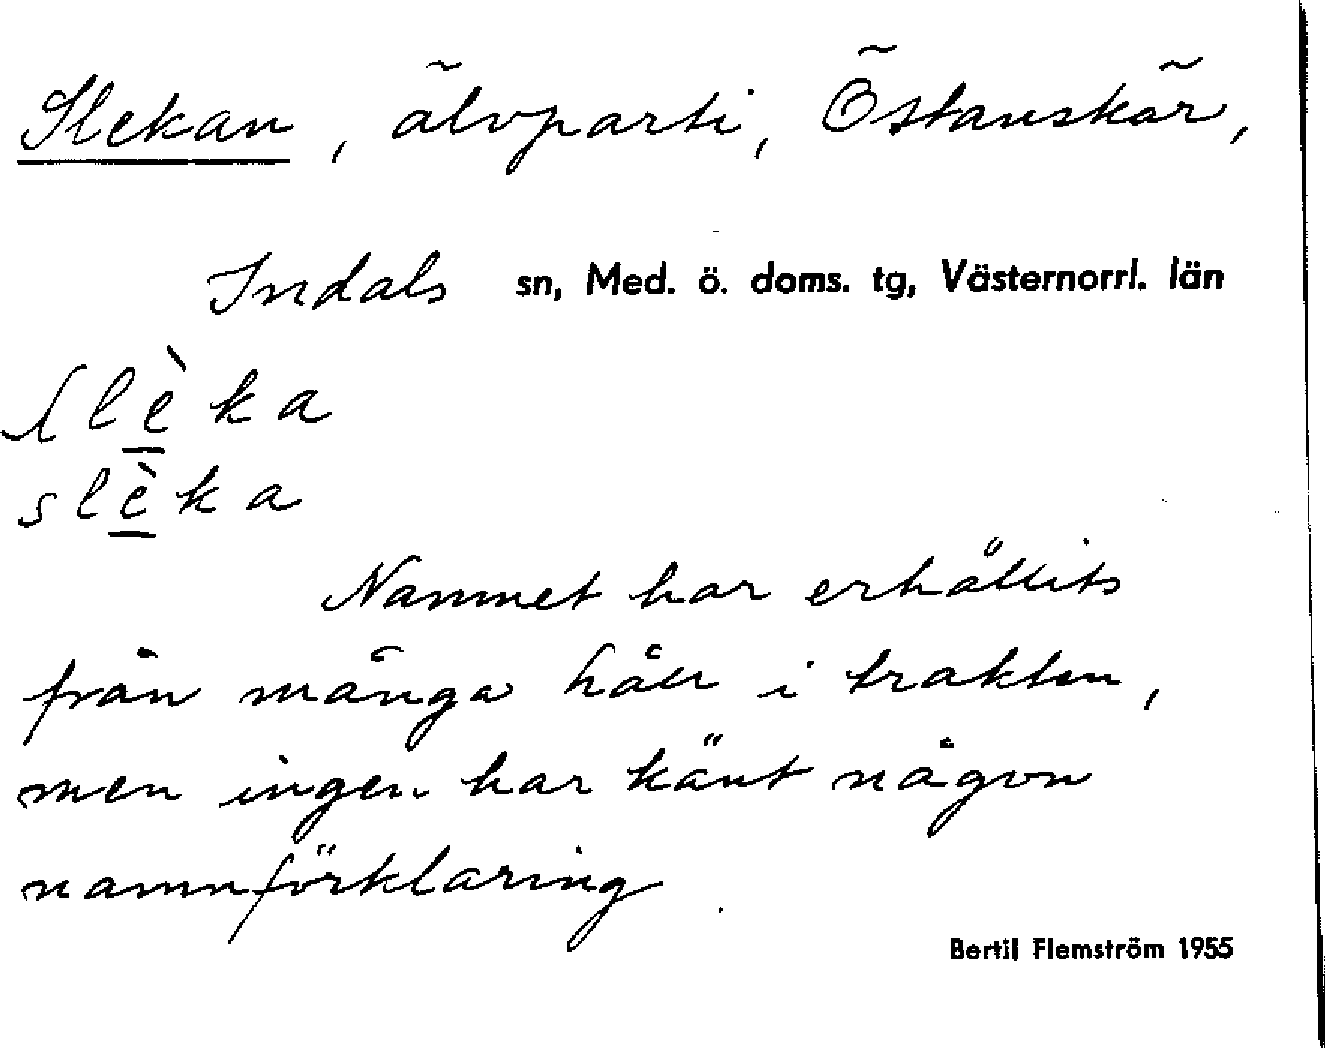 Slekan, älvparti, Östanskär,
Indals sn, Med. ö. doms. tg, Västernorrl. län
ʃlè̱ka
slè̱ka
Namnet har erhållits
från många håll i trakten,
men ingen har känt någon
namnförklaring.
Bertil Flemström 1955